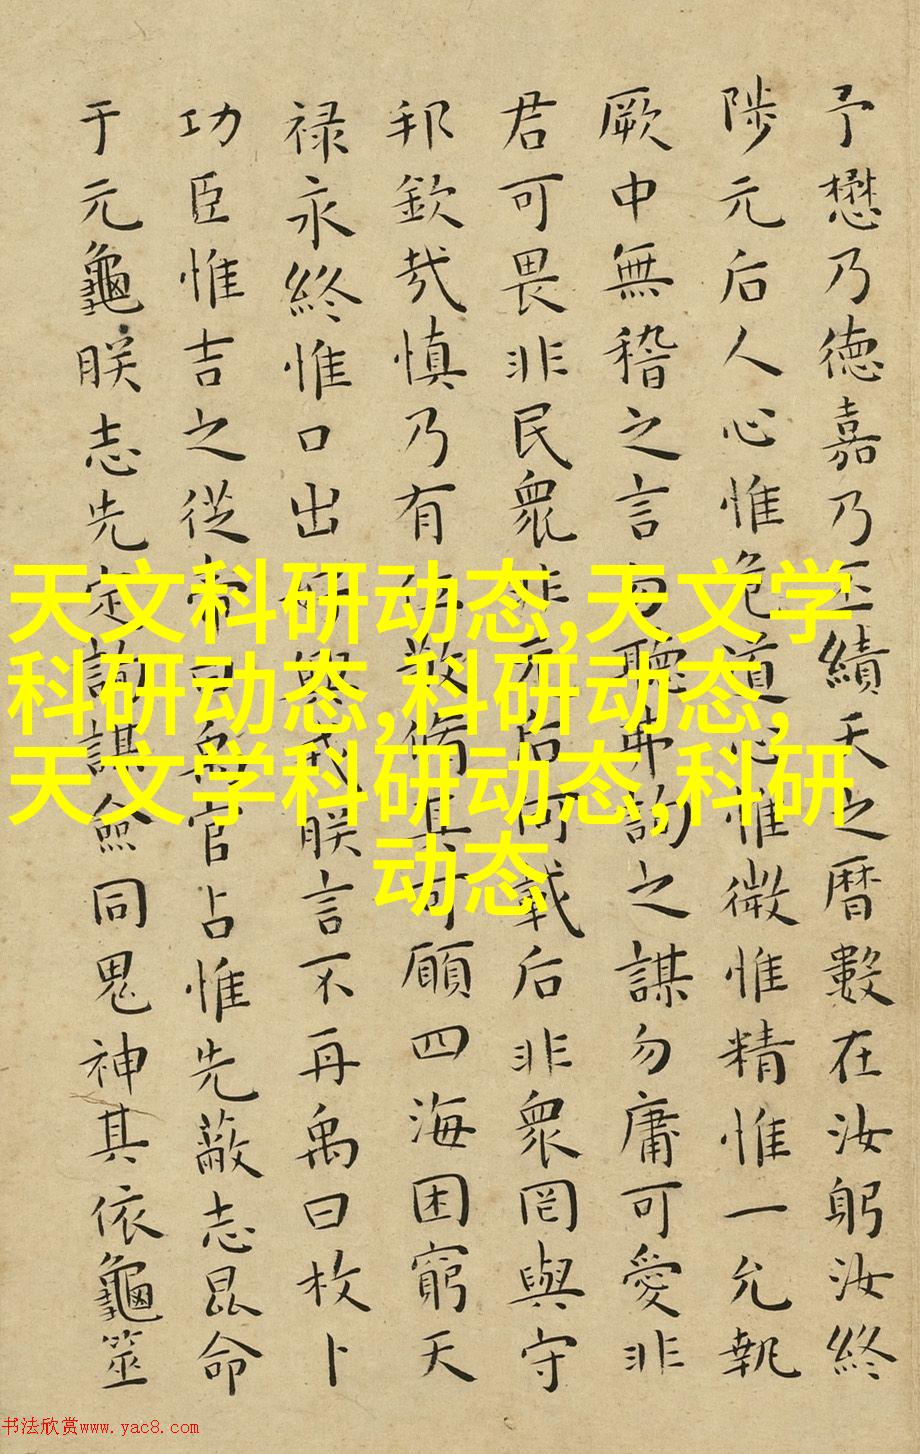 予懋乃德嘉乃丕績天之曆數在汝躬汝終
陟元后人心惟危道心惟微惟精惟一允執
厥中無稽之言勿聽弗詢之謀勿庸可愛非
君可畏非民衆非元后何戴后非衆罔與守
邦欽哉慎乃有位敬脩其可願四海困窮天
禄永終惟口出好興戎朕言不再禹曰枚卜
功臣惟吉之從帝曰禹官占惟先蔽志昆命
于元龜朕志先定詢謀僉同鬼神其依龜筮
天文科研动态,天文学
科研动态,科研动态,
天文学科研动态,科研
动态
书法欣赏www.yac8.com